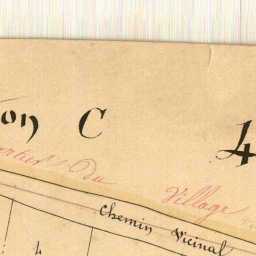 on C 4
Du Village
Chemin Vicinal
4